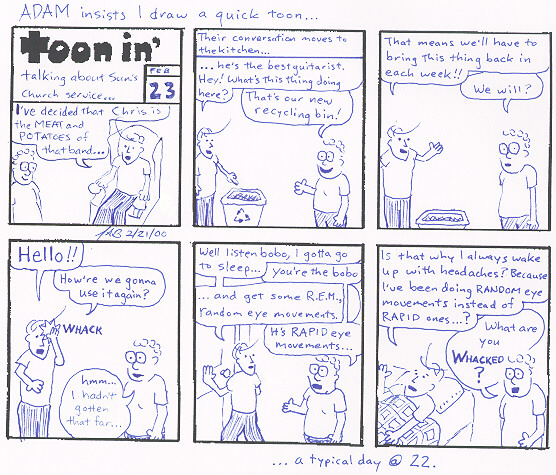 ADAM insists I draw a quick toon...
toon in'
talking about Sun's
Church service...
FEB
23
I've decided that Chris is
the MEAT and
POTATOES of
that band...
JAB 2/21/00
Their conversation moves to
the kitchen...
...he's the best guitarist.
Hey! What's this thing doing
here?
That's our new
recycling bin!
That means we'll have to
bring this thing back in
each week!!
We will?
Hello!!
How're we gonna
use it again?
WHACK
hmm...
I hadn't
gotten
that far...
Well listen bobo, I gotta go
to sleep...
you're the bobo
...and get some R.E.M.,
random eye movements.
It's RAPID eye
movements...
Is that why I always wake
up with headaches? Because
I've been doing RANDOM eye
movements instead of
RAPID ones...?
What are
you
WHACKED
?
...a typical day @ 22.